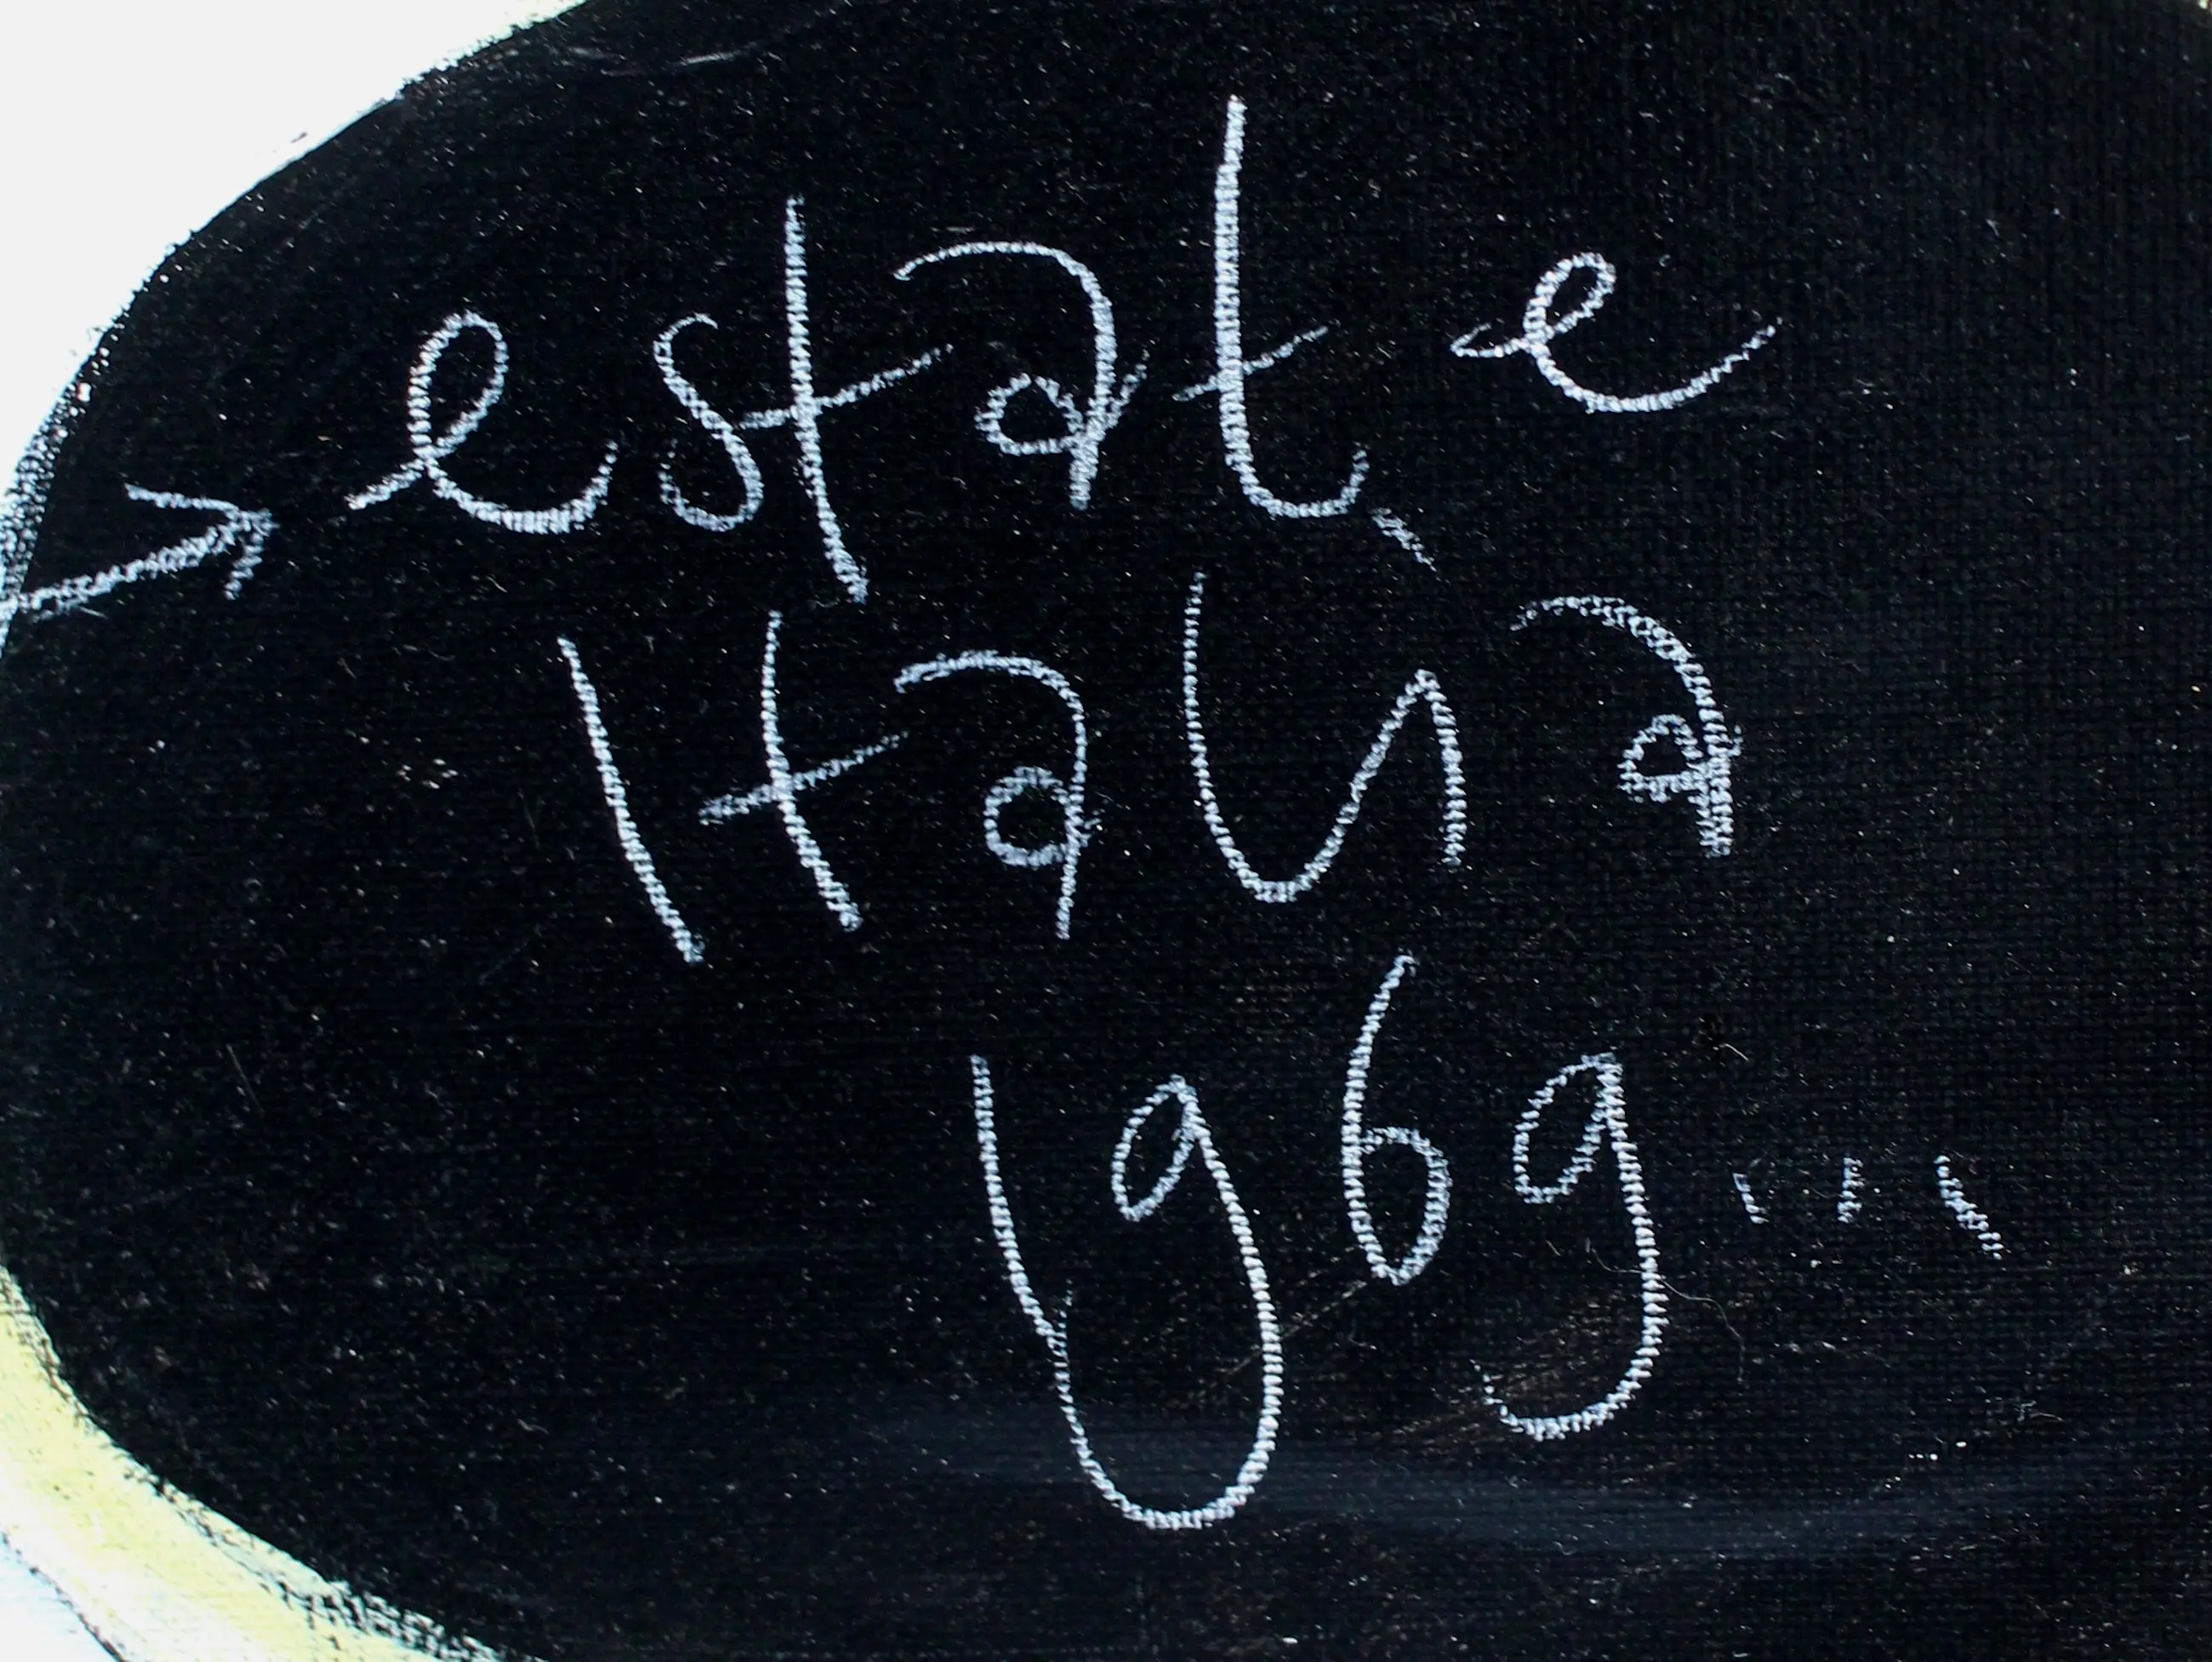 → estate,
Italia
1969...